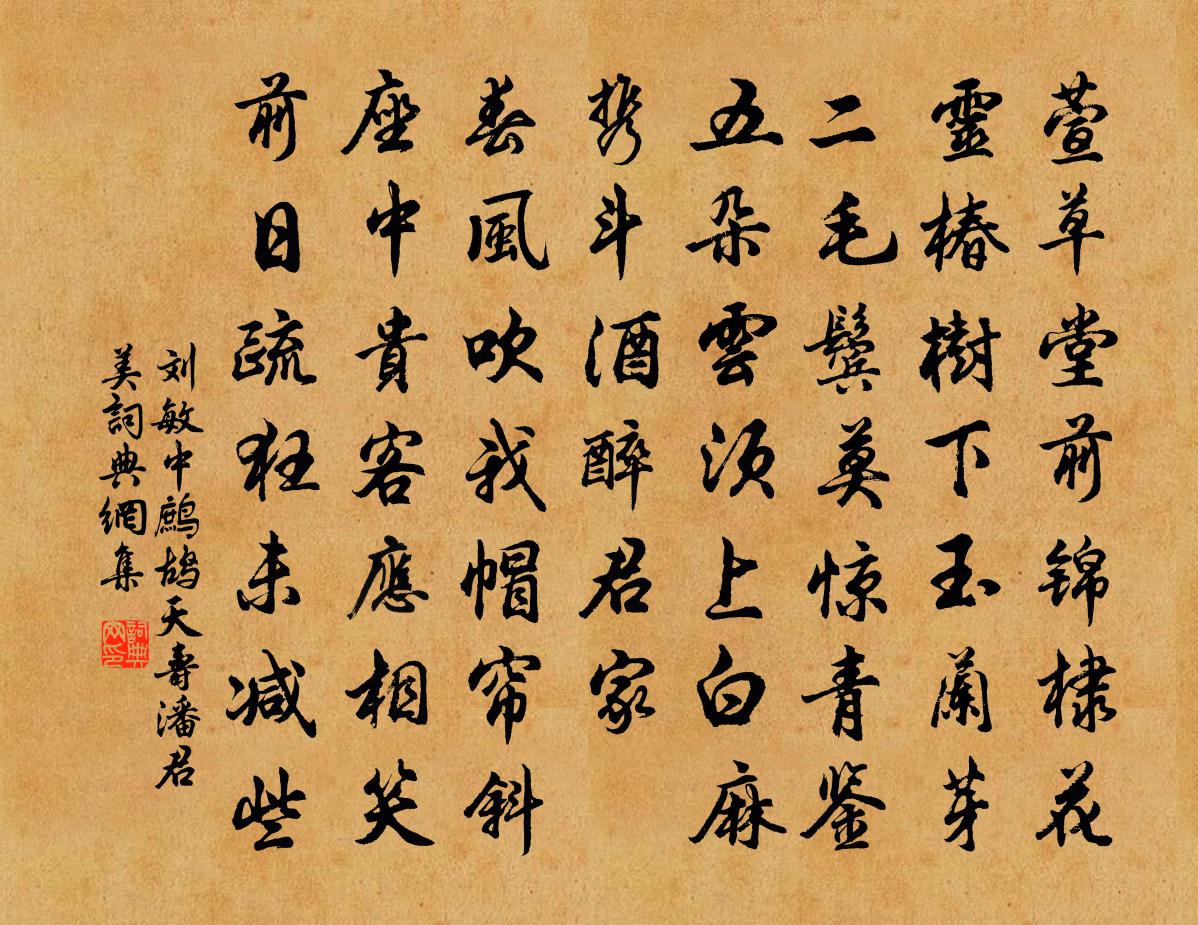 萱草堂前锦棣花
靈椿樹下玉蘭芽
二毛鬓莫惊青鉴
五朵雲须上白麻
携斗酒醉君家
春風吹我帽帘斜
座中貴客應相笑
前日疏狂未减些
刘敏中鹧鸪天壽潘君
美詞典網集
詞典網印